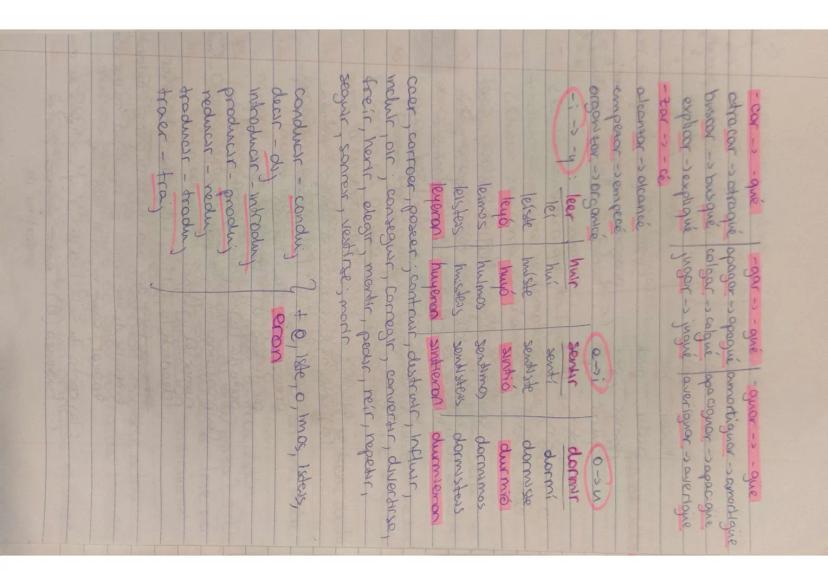 -car → -qué | -gar → -gué | -guar → -güe
atracar → atraqué | apagar → apagué | amortiguar → amortigüe
buscar → busqué | colgar → colgué | apaciguar → apacigüe
explicar → expliqué | jugar → jugué | averiguar → averigüe
-zar → -cé
alcanzar → alcancé
empezar → empecé
organizar → organicé
-i- → -y- e → i o → u
leer | huir | sentir | dormir
leí | huí | sentí | dormí
leíste | huiste | sentiste | dormiste
leyó | huyó | sintió | durmió
leímos | huimos | sentimos | dormimos
leísteis | huisteis | sentisteis | dormisteis
leyeron | huyeron | sintieron | durmieron
caer, corroer, poseer, contruir, destruir, influir,
incluir, oír; conseguir, corregir, convertir, divertirse,
freír, herir, elegir, mentir, pedir, reír, repetir,
seguir, sonreír, vestirse; morir
conducir - conduj } + e, iste, o, imos, isteis,
decir - dij eron
introducir - introduj
producir - produj
reducir - reduj
traducir - traduj
traer - traj